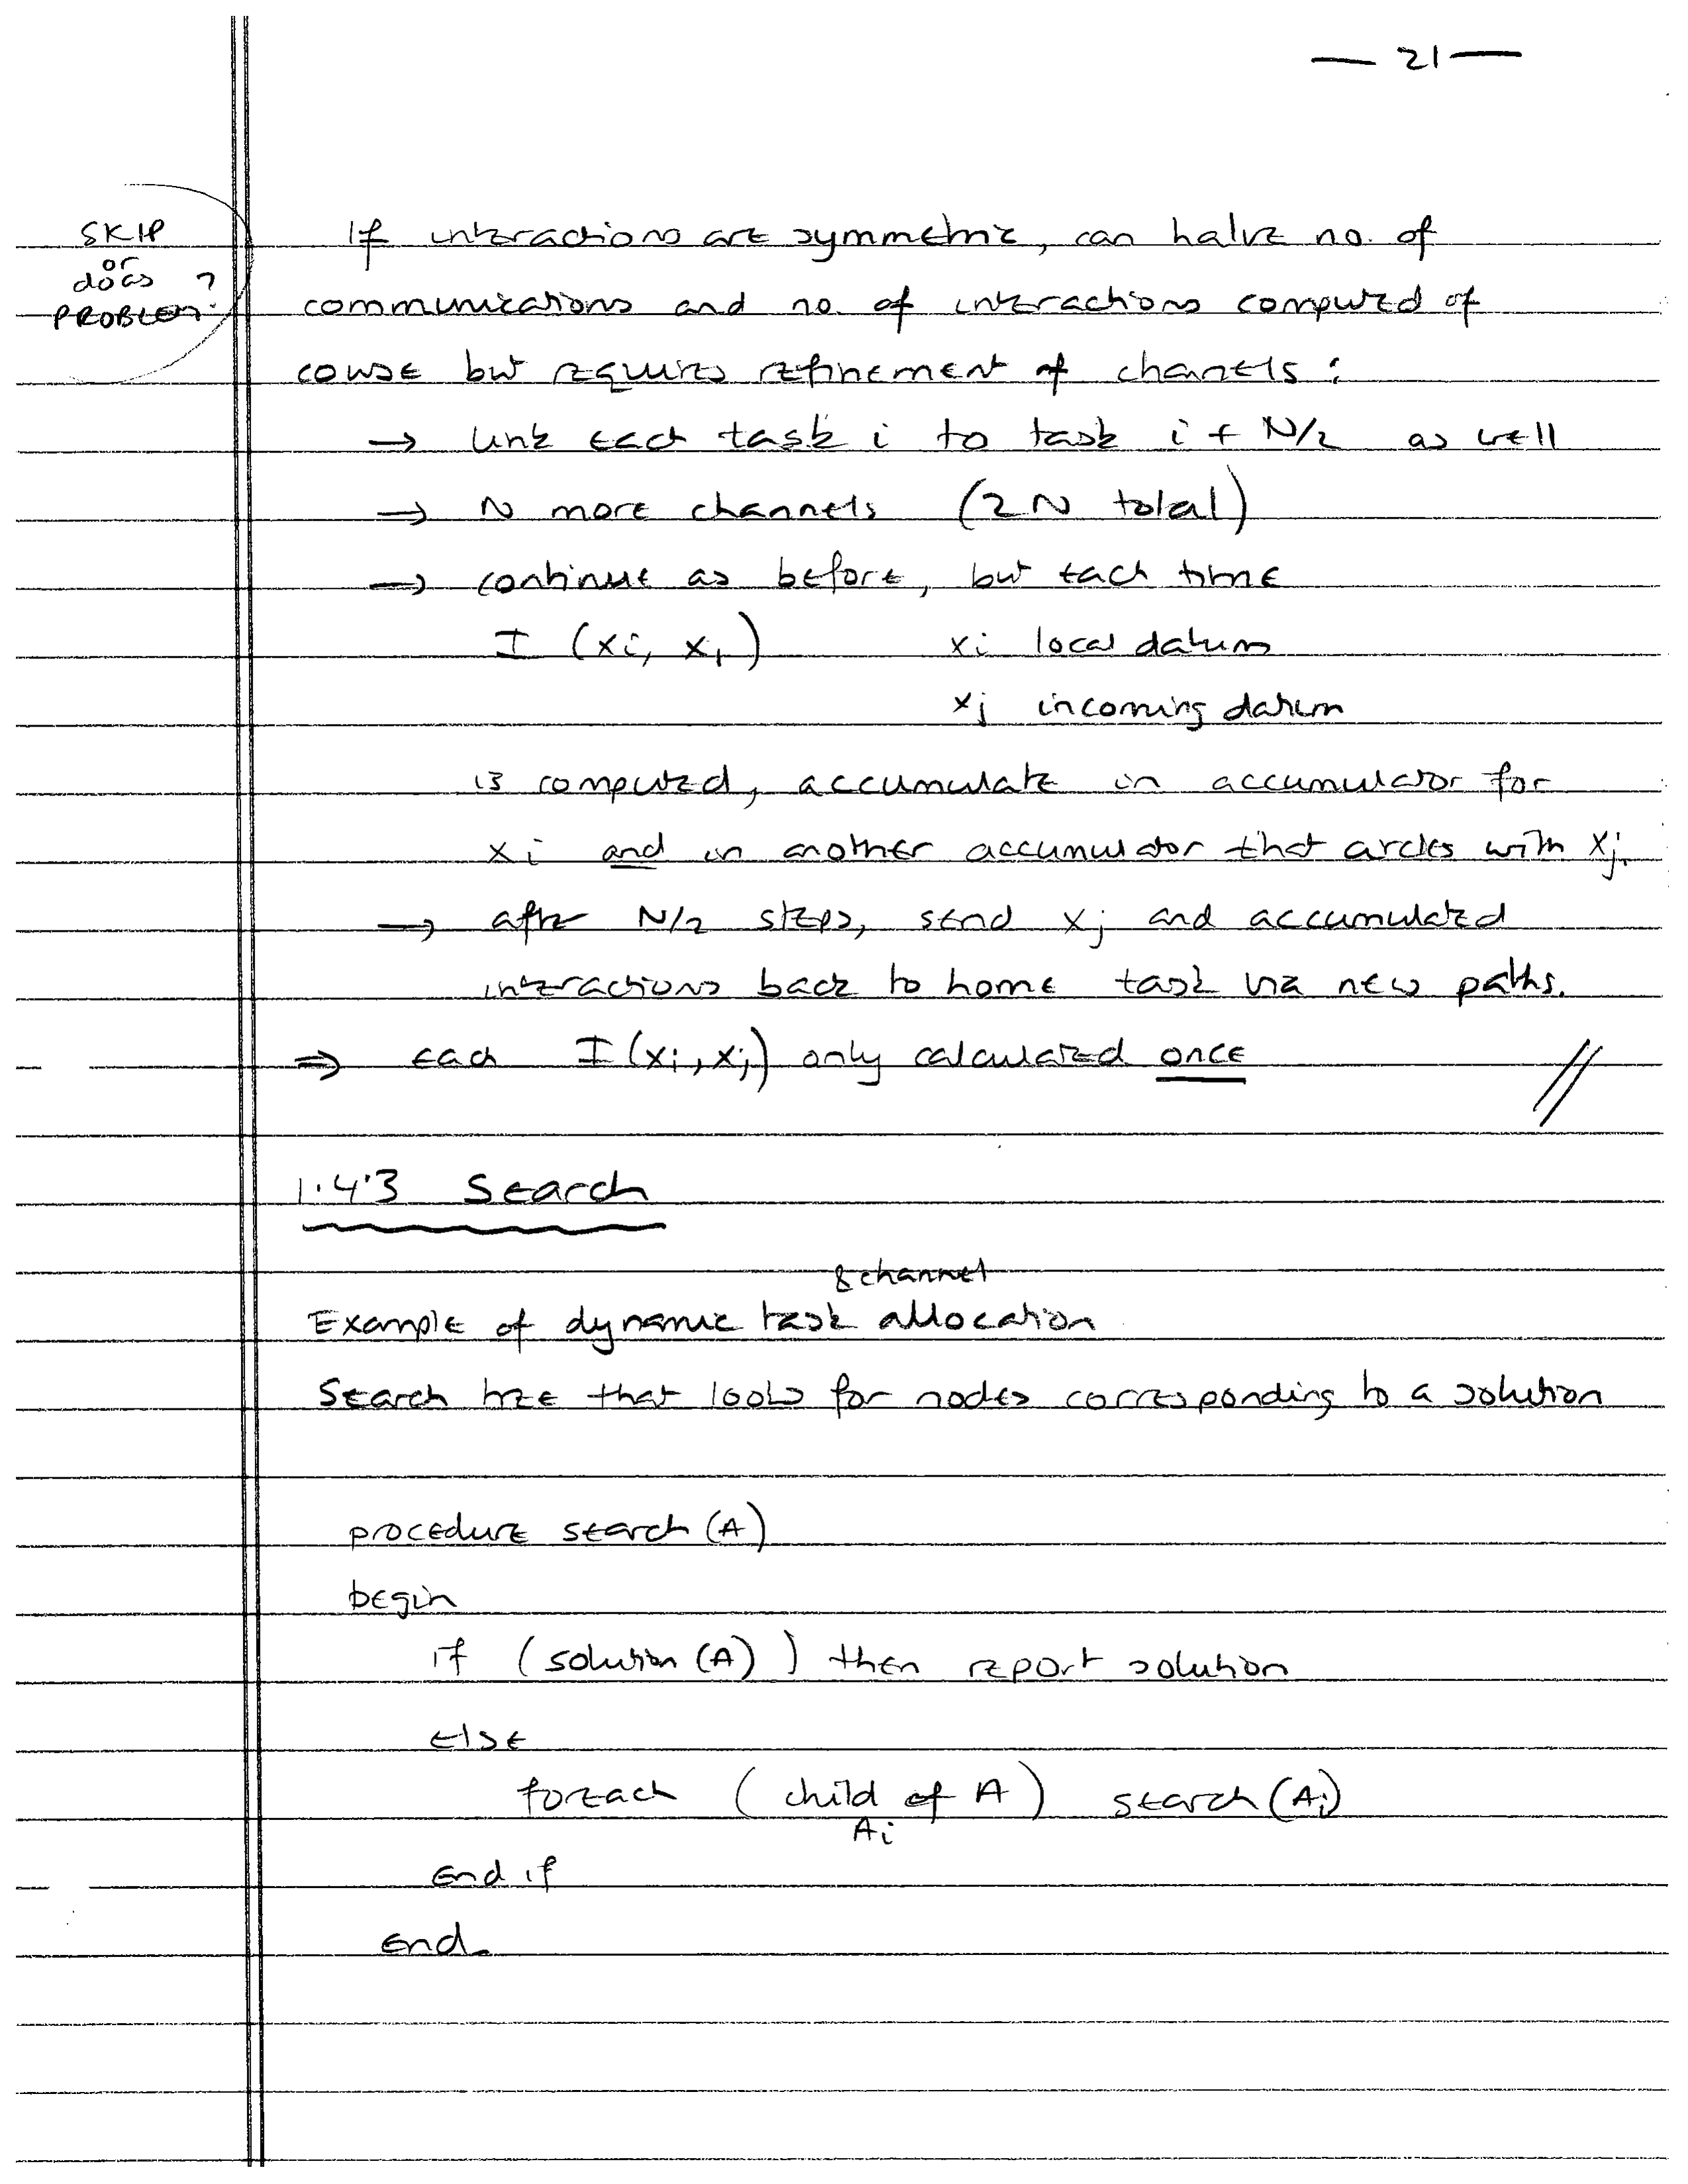 — 21 —
SKIP
or
do as ?
PROBLEM
If interactions are symmetric, can halve no. of
communications and no. of interactions computed of
couse but requires refinement of channels :
→ link each task i to task i + N/2 as well
→ N more channels (2N total)
→ continue as before, but each time
I (xi, xj) xi local datum
xj incoming datum
is computed, accumulate in accumulator for
xi and in another accumulator that circles with xj.
→ after N/2 steps, send xj and accumulated
interactions back to home task via new paths.
⇒ each I (xi, xj) only calculated once //
1.4.3 Search
& channel
Example of dynamic task allocation
Search tree that looks for nodes corresponding to a solution
procedure search (A)
begin
if (solution (A) ) then report solution
else
foreach ( child of A ) search (Ai)
Ai
end if
end.